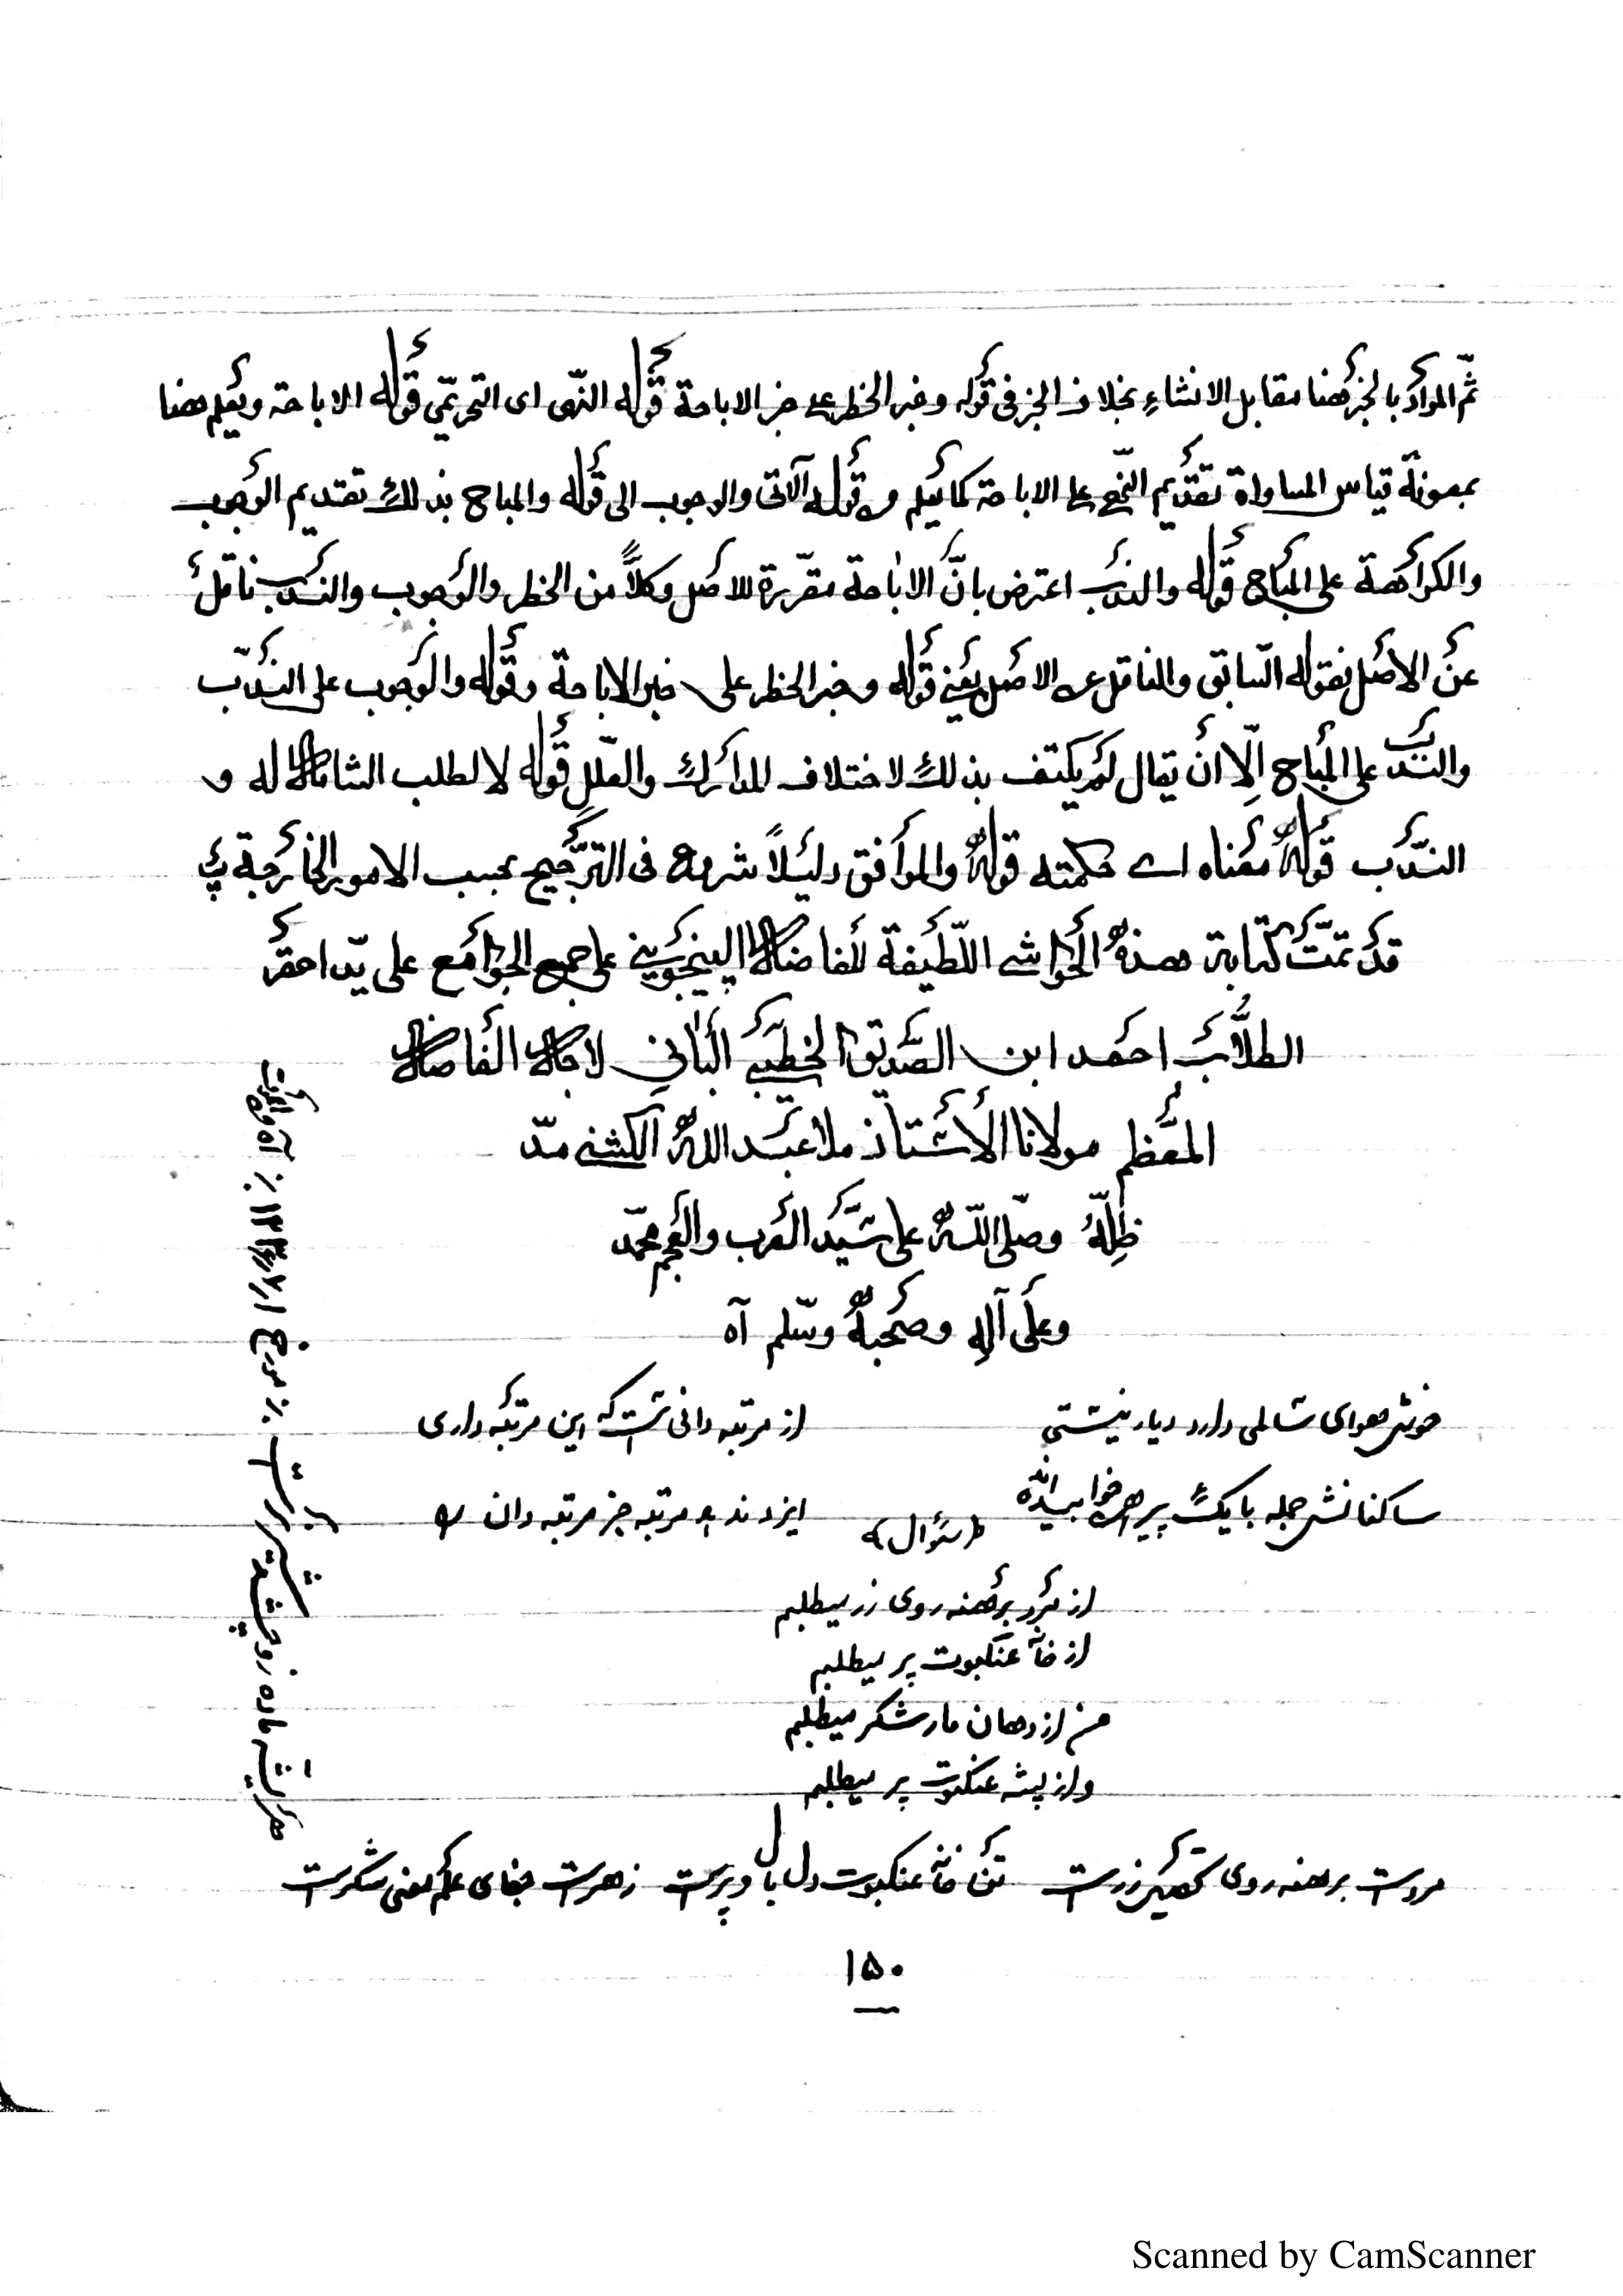 ثمّ المراد بالخبر هنا مقابل الانشاءِ بخلاف الخبر فى قوله وخبر الحظر على خبر الاباحة قوله النّهى اى التحريمّى قوله الاباحة ويعلم هنا
بمعونة قياس المساواة تقديم النّهى على الاباحة كما يعلم من قوله الآتى والوجوب الى قوله والمباح بذلك تقديم الوجوب
والكراهة على المباح قوله والندب اعترض بانّ الاباحة مقرّرة للاصل وكلاًّ من الحظر والوجوب والندب ناقل
عن الاصل فقوله السّابق والناقل عن الاصل يغنى قوله وخبر الحظر على خبر الاباحة وقوله والوجوب على النّدب
والنّدب على المباح الّا ان يقال لم يكتف بذلك لاختلاف المدارك والعلل قوله لا لطلب الشامل له و
النّدب قوله معناه اى حكمته قوله والموافق دليلاً شروع فى التّرجيح بحسب الامور الخارجة
قد تمّت كتابة هذه الحواشى اللّطيفة للفاضل الپينجوينى على جمع الجوامع على يد احقر
الطلّاب احمد ابن الصّديق الخطيب البانى لاجل الفاضل
المعّظم مولانا الأستاذ ملا عبد الله الكشنى مدّ
ظلّهُ وصلّى اللّه على سيّد العرب والعجم محمّد
وعلى آله وصحبه وسّلم آه
خوش هواى سالمى دارد ديار نيستى
از مرتبه دانى است كه اين مرتبه دارى
ساكنانش جمله با يك پيرهن خوابيدهاند
ايزد ندهد مرتبه جز مرتبه دان را
(سؤال)
از مرد برهنه روى زر ميطلبم
از خانهٔ عنكبوت پر ميطلبم
من از دهان مار شكر ميطلبم
واز پشه عنكبوت پر ميطلبم
مردست برهنه روى تحصيل زرست
تن خانهٔ عنكبوت دل بال وپرست
زهرست جفاى علم معنى شكرست
١٥٠
Scanned by CamScanner